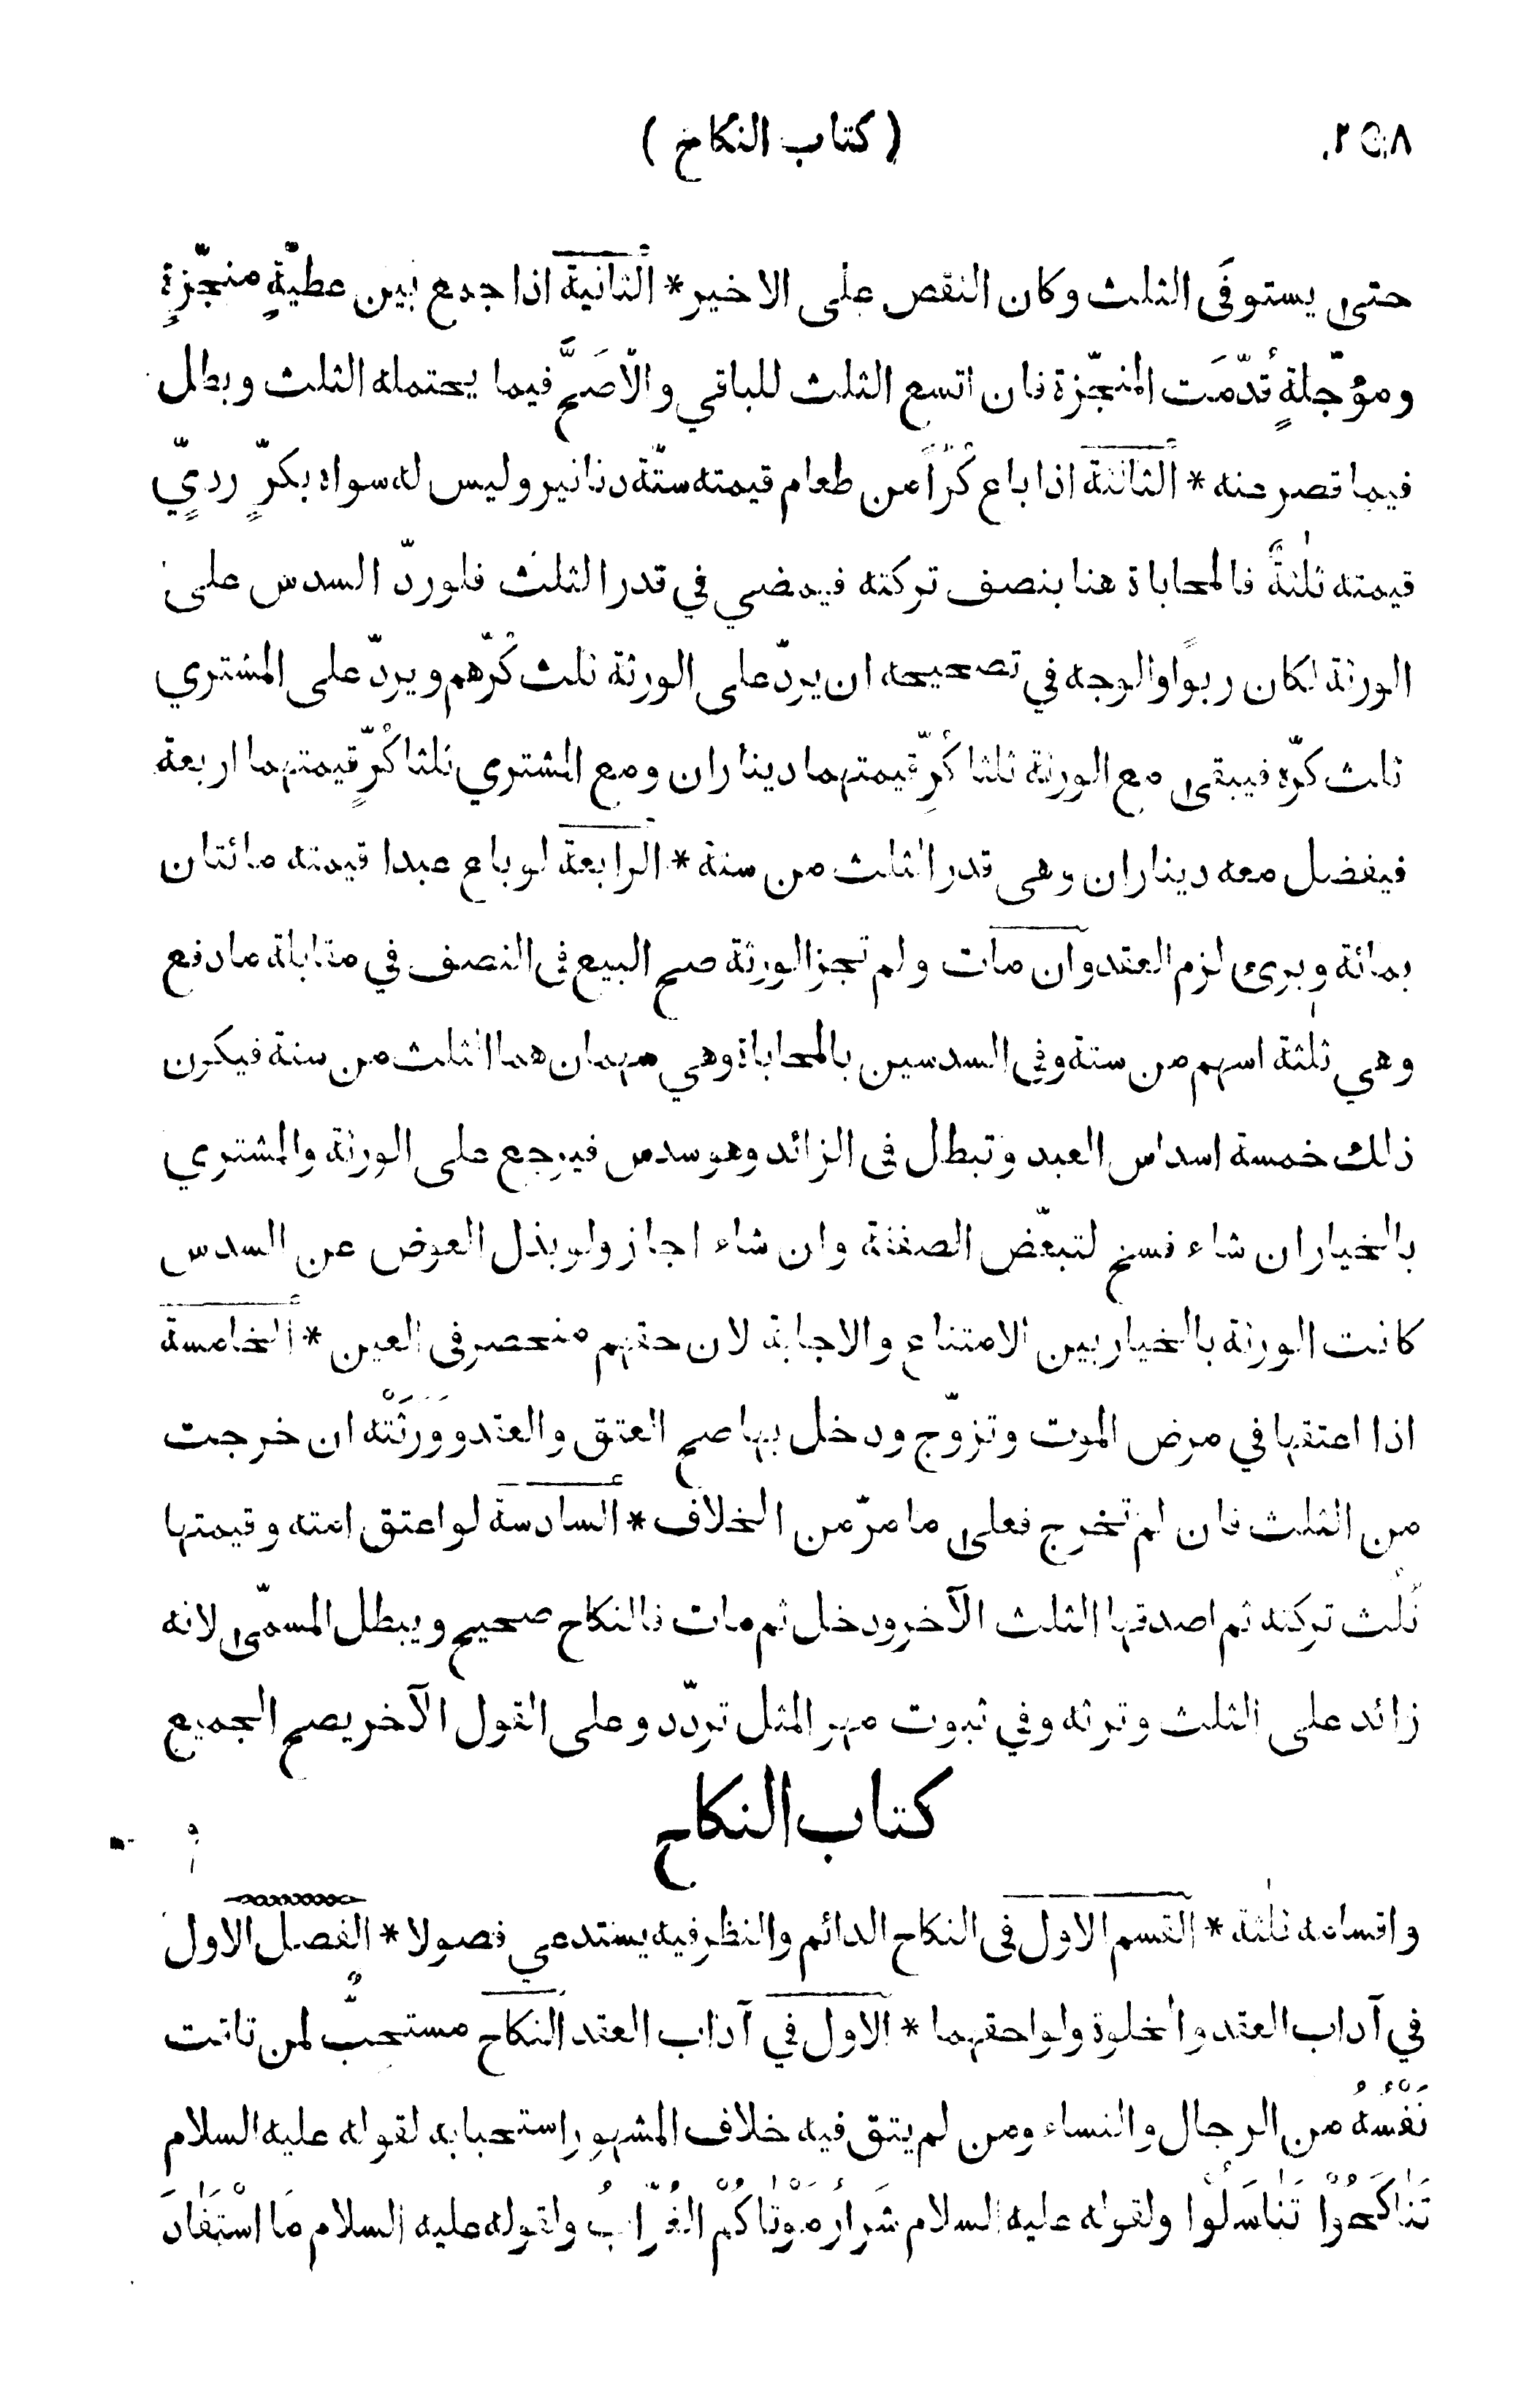 ٢٥٨ ( كتاب النكاح )
حتى يستوفى الثلث وكان النقص على الاخير * الثانية اذا جمع بين عطيّةٍ منجّزةٍ
ومؤجّلةٍ قُدّمَت المنجّزة فان اتسع الثلث للباقي والّا صَحَّ فيما يحتمله الثلث وبطل
فيما قصر عنه * الثالثة اذا باع كُرّاً من طعام قيمته ستّة دنانير وليس له سواه بكرٍّ رديٍّ
قيمته ثلٰثةٌ فالمحاباة هنا بنصف تركته فيمضي في قدر الثلث فلو ردّ السدس على
الورثة لكان ربوًا والوجه في تصحيحه ان يردّ على الورثة ثلث كُرّهم ويردّ على المشتري
ثلث كرّه فيبقى مع الورثة ثلثا كُرٍّ قيمتهما ديناران ومع المشتري ثلثا كُرٍّ قيمتهما اربعة
فيفضل معه ديناران وهى قدر الثلث من ستة * الرابعة لو باع عبدا قيمته مائتان
بمائة وبرىء لزم العقد وان مات ولم تجز الورثة صح البيع فى النصف في مقابلة ما دفع
وهي ثلٰثة اسهم من ستة وفى السدسين بالمحاباة وهي سهمان هما الثلث من ستة فيكون
ذلك خمسة اسداس العبد وتبطل فى الزائد وهو سدس فيرجع على الورثة والمشتري
بالخيار ان شاء فسخ لتبعّض الصفقة وان شاء اجاز ولو بذل العوض عن السدس
كانت الورثة بالخيار بين الامتناع والاجابة لان حقهم منحصر فى العين * الخامسة
اذا اعتقها في مرض الموت وتزوّج ودخل بها صح العتق والعقد ووَرَثَتْه ان خرجت
من الثلث فان لم تخرج فعلى ما مرّ من الخلاف * السادسة لو اعتق امته وقيمتها
ثُلُث تركته ثم اصدقها الثلث الآخر ودخل ثم مات فالنكاح صحيح ويبطل المسمّى لانه
زائد على الثلث وترثه وفي ثبوت مهر المثل تردّد وعلى القول الآخر يصح الجميع
كتاب النكاح
واقسامه ثلٰثة * القسم الاول فى النكاح الدائم والنظر فيه يستدعي فصولا * الفصل الاول
في آداب العقد والخلوة ولواحقهما * الاول في آداب العقد النكاح مستحبٌّ لمن تاقت
نَفْسُهُ من الرجال والنساء ومن لم يتق فيه خلاف المشهور استحبابه لقوله عليه السلام
تَنَاكَحُوْا تَنَاسَلُوْا ولقوله عليه السلام شَرَارُ مَوْتَاكُمْ الْعُزَّابُ ولقوله عليه السلام مَا اسْتَفَادَ